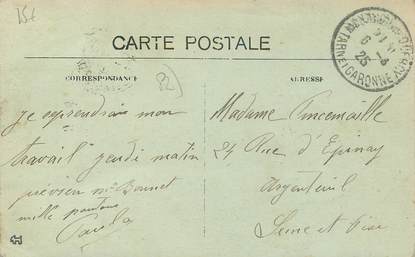 15€
CARTE POSTALE
CORRESPONDANCE
(82)
ADRESSE
TARN ET GARONNE
6 -4
25
je reprendrai mon
travail jeudi matin
prévien Mr Bonnet
mille pardons
Paula
Madame Pincemaille
24 Rue d'Epinay
Argenteuil
Seine et Oise